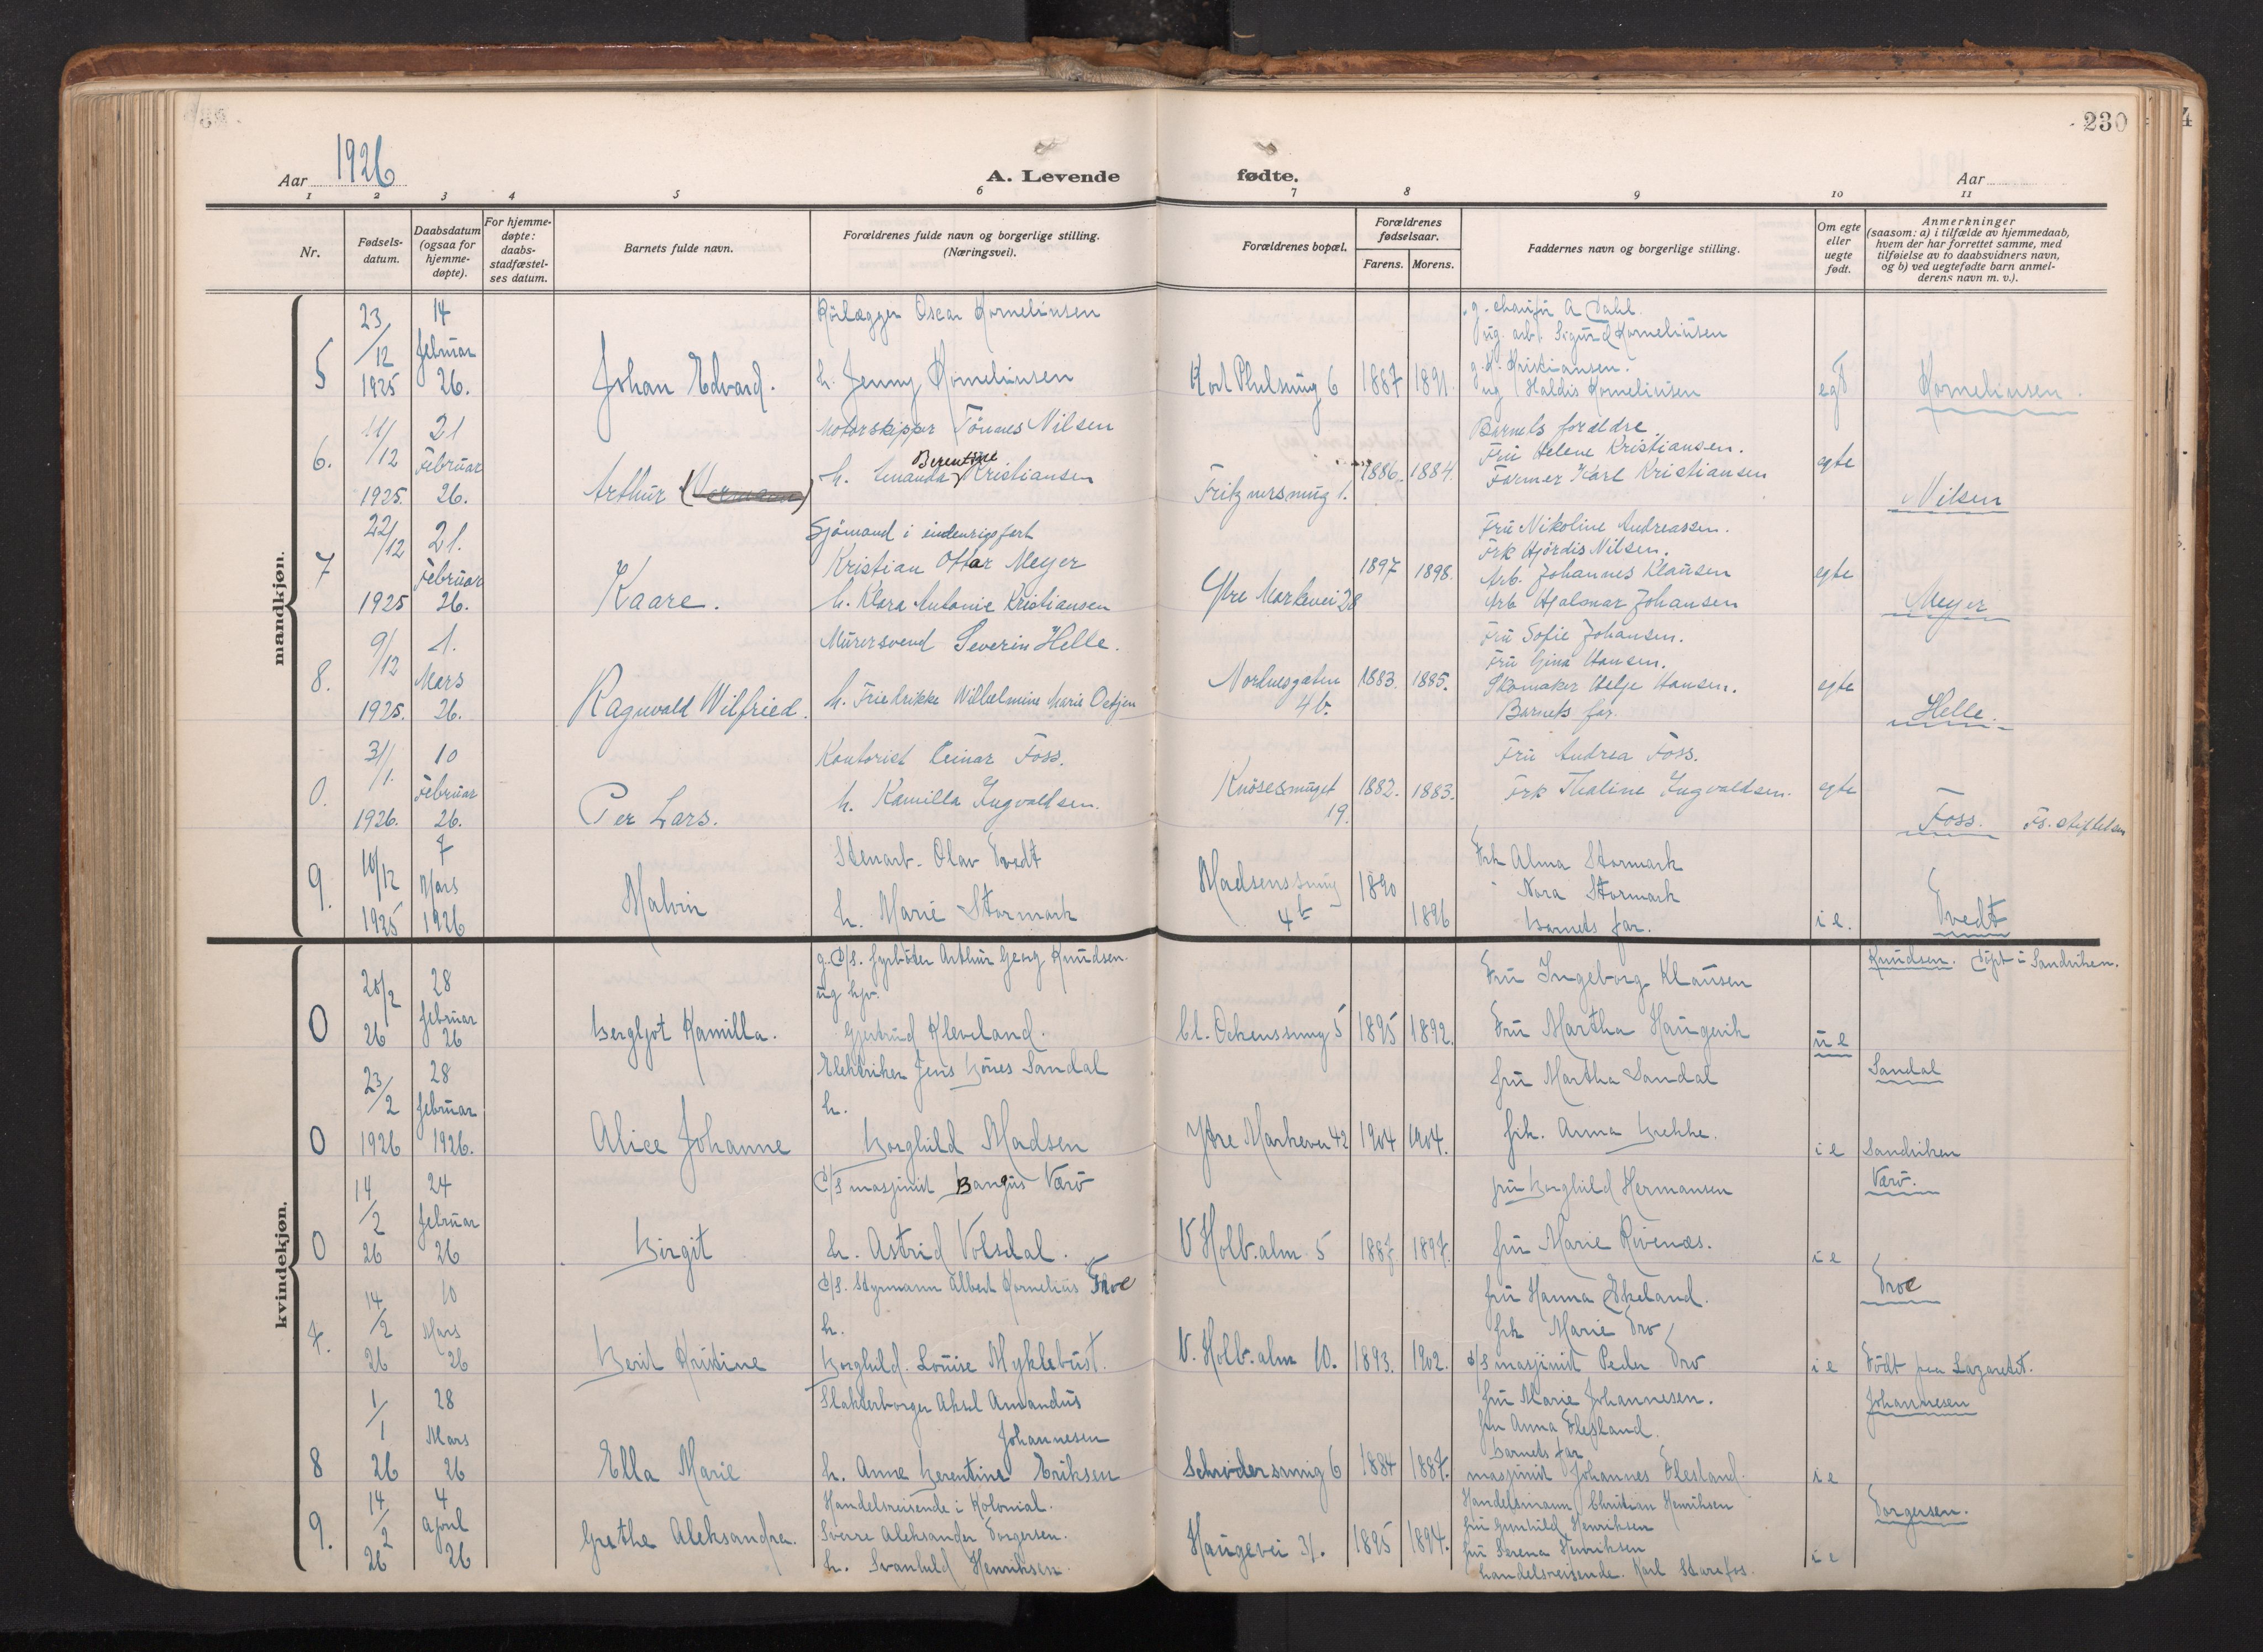 230
Aar 1926
A. Levende fødte.
Aar
1 2 3 4 5 6 7 8 9 10 11
Nr.
Fødsels-
datum.
Daabsdatum
(ogsaa for
hjemme-
døpte).
For hjemme-
døpte:
daabs-
stadfæstel-
ses datum.
Barnets fulde navn.
Forældrenes fulde navn og borgerlige stilling.
(Næringsvei).
Forældrenes bopæl.
Forældrenes
fødselsaar.
Farens. Morens.
Faddernes navn og borgerlige stilling.
Om egte
eller
uegte
født.
Anmerkninger
(saasom: a) i tilfælde av hjemmedaab,
hvem der har forrettet samme, med
tilføielse av to daabsvidners navn,
og b) ved uegtefødte barn anmel-
derens navn m. v.).
mandkjøn.
5
23/12 1925
14 februar 26.
Johan Edvard.
Rörlægger Oscar Kornelinsen
h. Jenny Kornelinsen
6
1887 1891.
g. chaufür A Dahl.
ug. arb. Sigurd Kornelinsen
g. K. Kristiansen.
ug Haldis Kornelinsen
egt
Kornelinsen.
6.
11/12 1925.
21 Februar 26.
Arthur
Motorskipper Tönnes Nilsen
Berentine
h. Amanda Kristiansen
Fritznersmug 1.
1886. 1884.
Barnets forældre.
Fru Helene Kristiansen.
Farmer Karl Kristiansen
egte
Nilsen
7
22/12 1925
21. Februar 26.
Kaare.
Sjömand i indenrigsfart
Kristian Ottar Meyer
h. Klara Antonie Kristiansen
Ytre Markevei 28
1897 1898.
Fru Nikoline Andreassen.
Frk Hjördis Nilsen.
Arb. Johannes Klausen
Arb Hjalmar Johansen
egte
Meyer
8.
9/12 1925.
1. Mars 26.
Ragnvald Wilfried.
Murersvend Severin Helle.
h. Friedrikke Wilhelmine Marie Oetjen
Nordnesgaten
4b.
1883. 1885.
Fru Sofie Johansen.
Fru Gina Hansen.
Skomaker Helje Hansen.
Barnets far.
egte
Helle.
0.
31/1. 1926.
10 Februar 26.
Per Lars.
Kontorist Einar Foss.
h. Kamilla Ingvaldsen.
Knösesmuget
19.
1882. 1883.
Fru Andrea Foss.
Frk Thaline Ingvaldsen.
egte
Foss. Fs. stiftelsen
9.
10/12 1925
7 Mars 1926
Malvin
Stenarb. Olav Tvedt
h. Marie Stormark
Madsenssmug
4b
1890 1896
Frk Alma Stormark
" Nora Stormark
barnets far.
i e.
Tvedt
kvindekjøn.
0
20/2 26
28 februar 26
Bergljot Kamilla.
g. D/S. fyrböter Arthur Georg Knudsen.
ug hp.
Gjertrud Kleveland.
Cl. Ockenssmug 5
1895 1892.
Fru Ingeborg Klausen
Fru Martha Haugevik
u e
Knudsen. Döpt i Sandviken.
0
23/2 1926
28 februar 1926.
Alice Johanne
Elektriker Jens Bönes Sandal
h.
Borghild Madsen
Ytre Markevei 42
1904 1904.
fru Martha Sandal
frk. Anna Brekke.
i e
Sandal
Sandviken
0
14/2 26
24 februar 26
Birgit
D/S masjinist Bangus Værö
h. Astrid Volsdal.
V Holb. alm 5
1887. 1897.
fru Borghild Hermansen
fru Marie Rivenæs.
i e
Værö.
7.
14/2 26
10 Mars 26
Berit Kristine
D/S. Styrmann Albert Kornelius Troe
h.
Borghild. Louise Myklebust.
V. Holb. alm 10.
1893. 1902.
fru Hanna Ekeland.
frk Marie Tro
D/S masjinist Peder Tro
i e
Troe
Född paa Lazarettet.
8
1/1 26
28 Mars 26
Ella Marie
Slakterborger Aksel Amandus
Johannesen
h. Anne Berentine Eriksen
Schrödersmug 6
1884 1887.
fru Marie Johannesen.
fru Anna Flesland.
barnets far
masjinist Johannes Flesland.
i e
Johannesen
9.
14/2 26
4 april 26
Grethe Aleksandra.
Handelsreisende i Kolonial.
Sverre Aleksander Torgersen.
h. Svanhild Henriksen.
Haugevei 31.
1895 1894.
Handelsmann Christian Henriksen
fru Gunhild Henriksen
fru Serena Henriksen
handelsreisende. Karl Starefos.
i e
Torgersen.